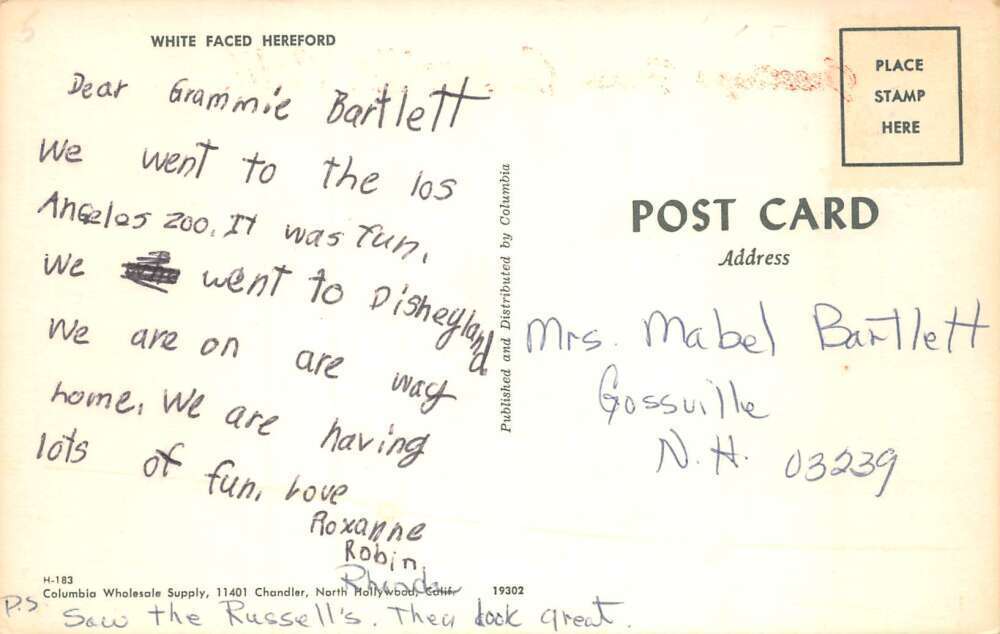 WHITE FACED HEREFORD
Dear Grammie Bartlett
We went to the los
Angeles zoo. It was fun.
We went to Disneyland.
We are on are way
home. We are having
lots of fun. Love
Roxanne
Robin,
Rhonda
H-183
Columbia Wholesale Supply, 11401 Chandler, North Hollywood, Calif.
19302
P.S. Saw the Russell's. They look great.
Published and Distributed by Columbia
PLACE
STAMP
HERE
POST CARD
Address
Mrs. Mabel Bartlett
Gossville
N.H. 03239